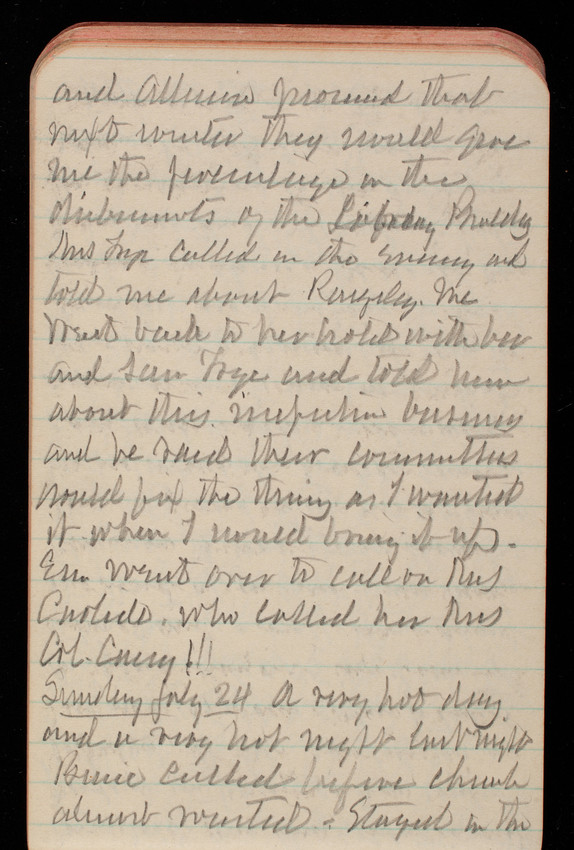 and Allison promised that
next winter they would give
me the percentage on the
disbursements of the Library Building
Mrs Frye called in the evening and
told me about Rangeley. We
went back to her hotel with her
and saw Frye and told him
about this inspection business
and he said their committees
would fix the thing as I wanted
it when I would bring it up.
Em. went over to call on Mrs
Carlisle, who called her Mrs
Col. Casey!!!
Sunday July 24 A very hot day
and a very hot night last night
called before church
almost wanted - Stayed in the